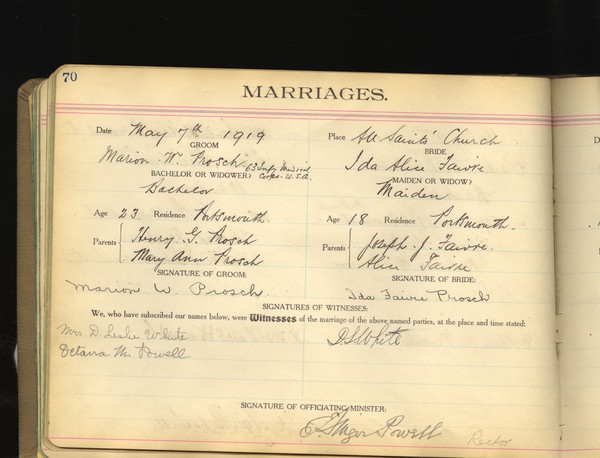 70
MARRIAGES.
Date May 7th 1919
Place All Saints' Church
GROOM
BRIDE
Marion W. Prosch 63 Infy Medical Corps U.S.A.
Ida Alice Faivre
BACHELOR OR WIDOWER?
MAIDEN OR WIDOW?
Bachelor
Maiden
Age 23 Residence Portsmouth
Age 18 Residence Portsmouth.
Parents Henry G. Prosch
Mary Ann Prosch
Parents Joseph J. Faivre.
Alice Faivre
SIGNATURE OF GROOM:
SIGNATURE OF BRIDE:
Marion W. Prosch
Ida Faivre Prosch
SIGNATURES OF WITNESSES:
We, who have subscribed our names below, were Witnesses of the marriage of the above named parties, at the place and time stated:
Mrs. D. Leslie White
D.L.White
Octavia M. Powell
SIGNATURE OF OFFICIATING MINISTER:
Powell Rector
D